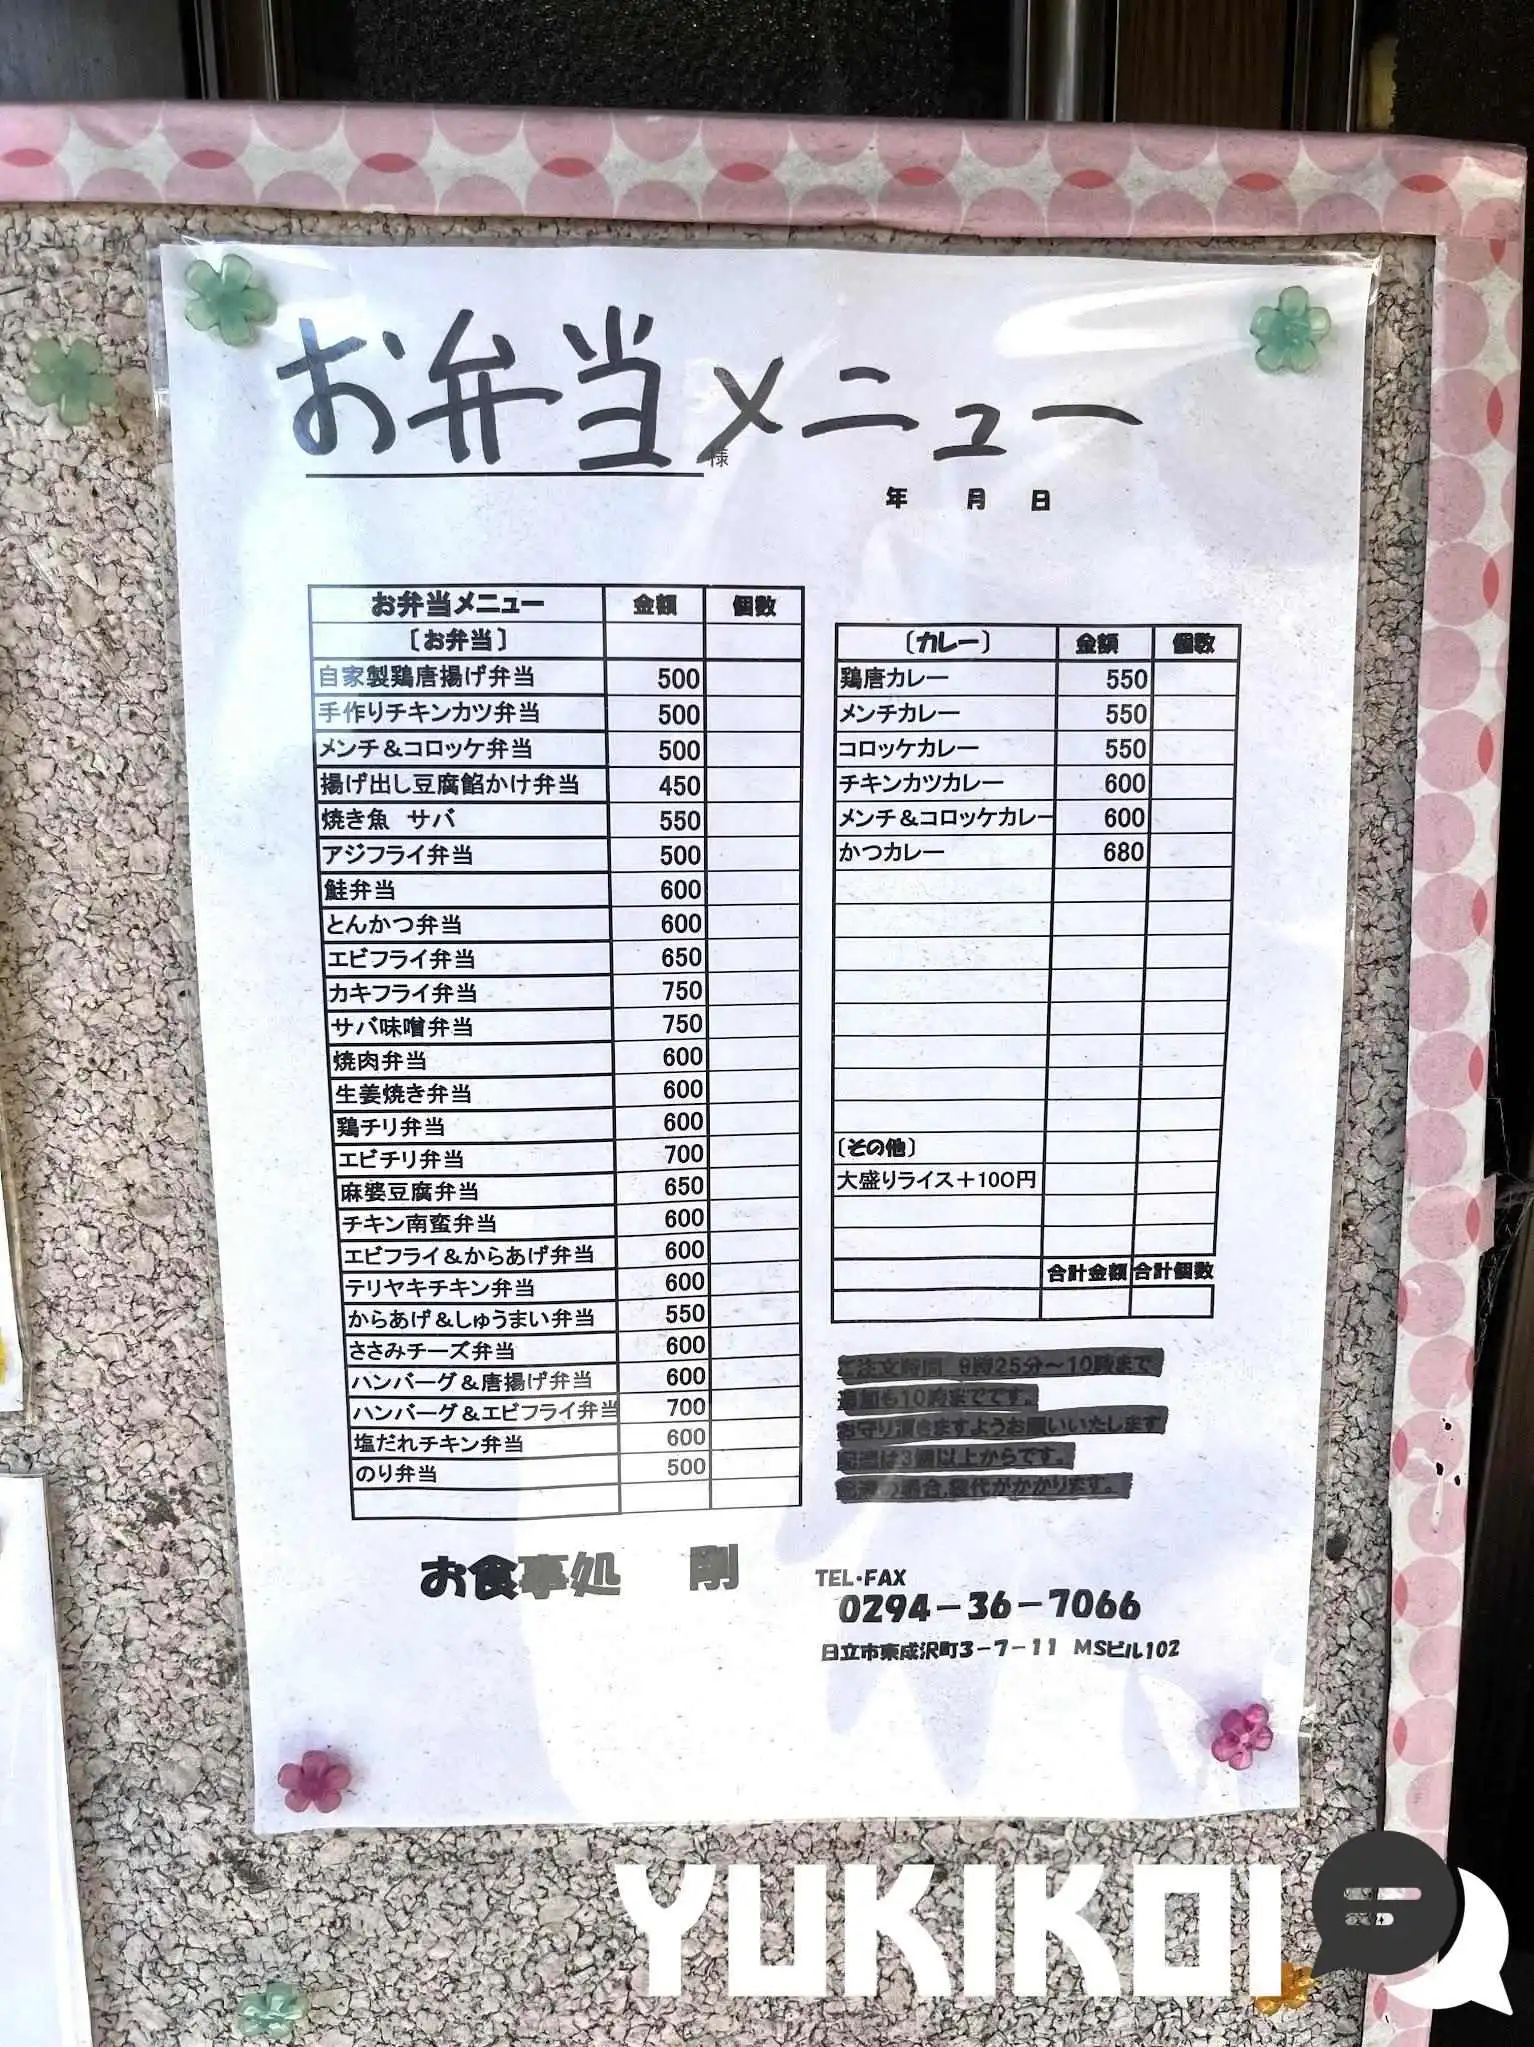 お弁当メニュー
様
年 月 日
お弁当メニュー 金額 個数
〔お弁当〕
自家製鶏唐揚げ弁当 500
手作りチキンカツ弁当 500
メンチ＆コロッケ弁当 500
揚げ出し豆腐餡かけ弁当 450
焼き魚 サバ 550
アジフライ弁当 500
鮭弁当 600
とんかつ弁当 600
エビフライ弁当 650
カキフライ弁当 750
サバ味噌弁当 750
焼肉弁当 600
生姜焼き弁当 600
鶏チリ弁当 600
エビチリ弁当 700
麻婆豆腐弁当 650
チキン南蛮弁当 600
エビフライ＆からあげ弁当 600
テリヤキチキン弁当 600
からあげ＆しゅうまい弁当 550
ささみチーズ弁当 600
ハンバーグ＆唐揚げ弁当 600
ハンバーグ＆エビフライ弁当 700
塩だれチキン弁当 600
のり弁当 500
〔カレー〕 金額 個数
鶏唐カレー 550
メンチカレー 550
コロッケカレー 550
チキンカツカレー 600
メンチ＆コロッケカレー 600
かつカレー 680
〔その他〕
大盛りライス＋100円
合計金額 合計個数
ご注文時間 9時25分～10時まで
追加も10時までです。
お守り頂きますようお願いいたします
は3個以上からです。
合、袋代がかかります。
お食事処 剛
TEL・FAX
0294－36－7066
日立市東成沢町3－7－11 MSビル102
YUKIKOI